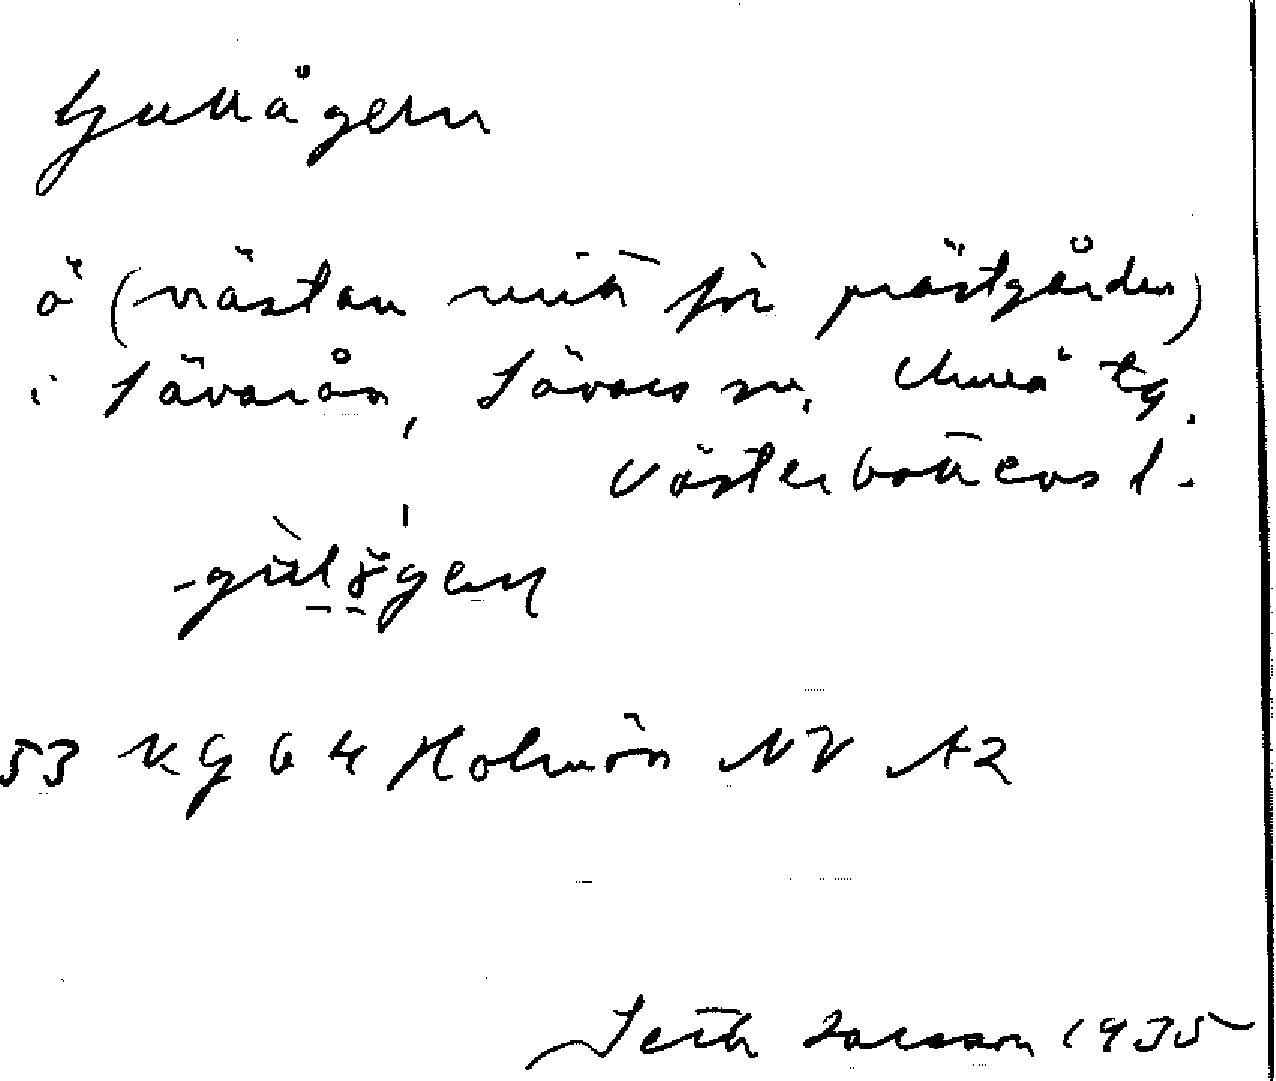 Gullågern
ö (nästan mitt för prästgården)
i Sävarån, Sävars sn, Umeå tg,
Västerbottens l.
53 Kg 64 Holmön NV A2
Seth Larsson 1935